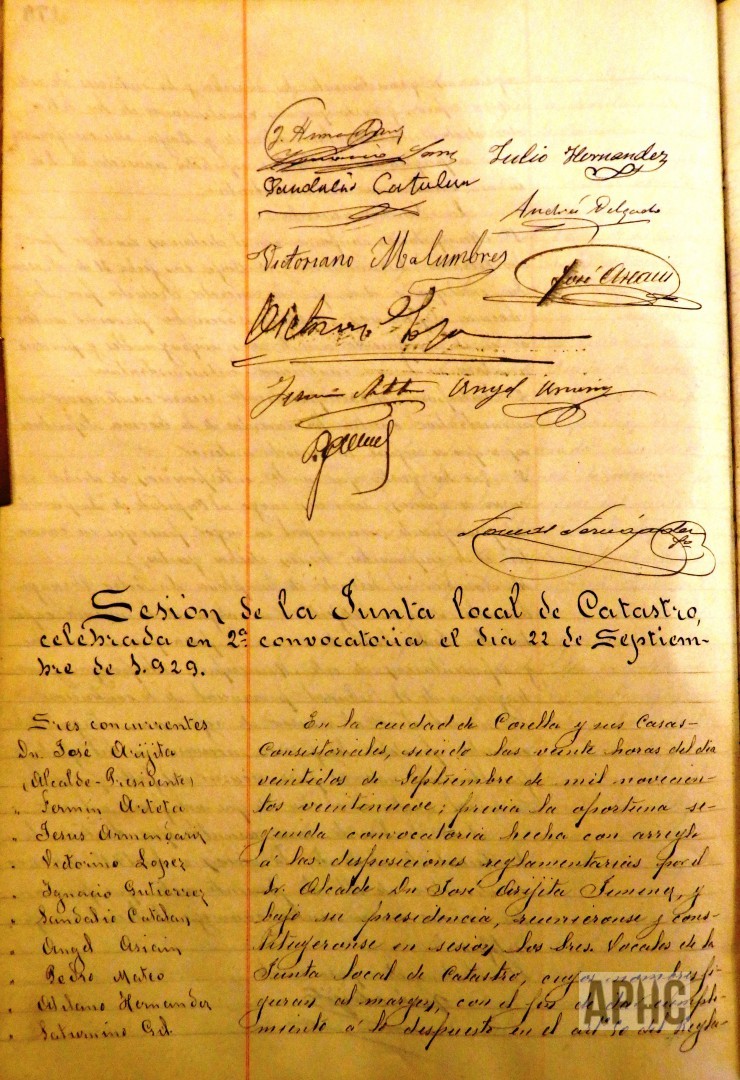 Julio Hernandez
Sandalio Catalan
Andrés Delgado
Victoriano Malumbres
José
Angel
Sesión de la Junta local de Catastro,
celebrada en 2ª convocatoria el dia 22 de Septiem-
bre de 1.929.
Sres concurrentes
Dn. José Arijita
(Alcalde-Presidente)
" Fermin Arteta
" Jesus Armendariz
" Victorino Lopez
" Ignacio Gutierrez
" Sandalio Catalan
" Angel Asiain
" Pedro Mateo
" Atilano Hernandez
" Saturnino Gil
En la ciudad de Corella y sus Casas-
Consistoriales, siendo las veinte horas del dia
veintidos de Septiembre de mil novecien-
tos veintinueve; previa la oportuna se-
gunda convocatoria hecha con arreglo
á las disposiciones reglamentarias por el
Sr. Alcalde Dn José Arijita Jimenez, y
bajo su presidencia, reunieronse y cons-
tituyeronse en sesion los Sres. Vocales de la
Junta local de Catastro, cuyos nombres fi-
guran al margen, con el fin de dar cumpli-
miento á lo dispuesto en el artº del Regla-
APHC